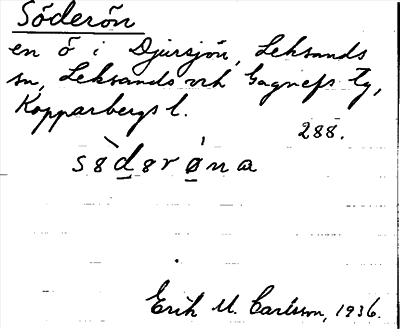 Söderön
en ö i Djursjön, Leksands
sn, Leksands och Gagnefs tg,
Kopparbergs l.
288.
södərøna
Erik M. Carlsson, 1936.